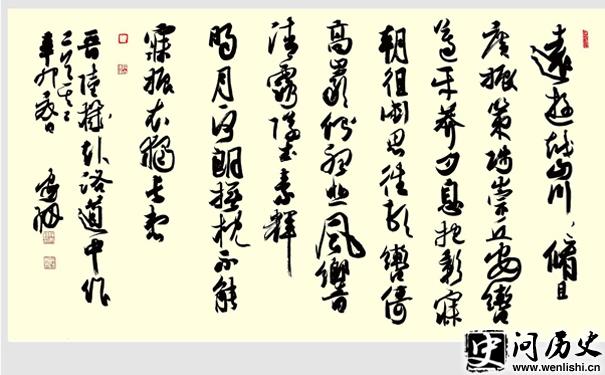 遠遊越山川々脩且
廣振策陟崇丘安轡
遵平莽夕息抱影寐
朝徂銜思往頓轡倚
高巖側聽悲風響
清露墜素輝
明月一何朗撫枕不能
寐振衣獨長想
晉陸機赴洛道中作
二首之二
辛卯
史 问历史
www.wenlishi.cn